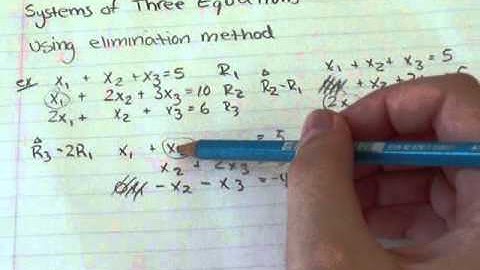 Systems of Three Equations
Using elimination method
ex x₁ + x₂ + x₃ = 5 R₁
x₁ + 2x₂ + 3x₃ = 10 R₂
2x₁ + x₂ + x₃ = 6 R₃
R₂ - R₁
x₁ + x₂ + x₃ = 5
+ x₂ +
2x
R₃ - 2R₁ x₁ + = 5
x₂ + 2x₃
- x₂ - x₃ = -4